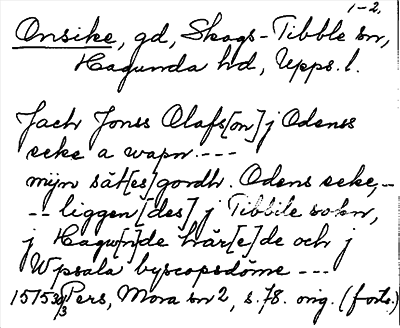 1-2.
Onsike, gd, Skogs-Tibble sn,
Hagunda hd, Upps. l.
Jach Jonss Olafs[on] j Odenss
eeke a wapn ---
mijn sät[es]gordh. Odens eeke, --
-- liggen[des] j Tibbile sokn,
j Hagw[n]de här[e]de och j
Wpsala byscopsdöme ---
1515 30/3 Pers, Mora sn 2, s. 78. orig. (forts.)